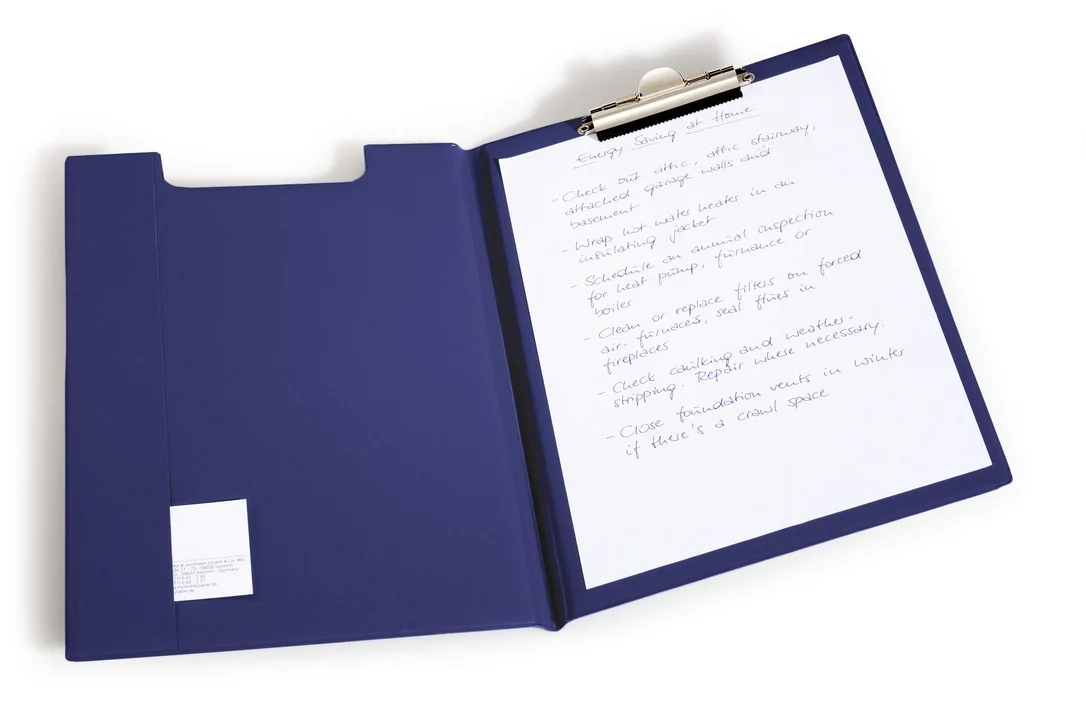 Energy Saving at Home
- Check out attic, attic stairway,
attached garage walls and
basement
- Wrap hot water heater in an
insulating jacket
- Schedule an annual inspection
for heat pump, furnance or
boiler
- Clean or replace filters on forced
air-furnaces, seal flues in
fireplaces
- Check caulking and weather-
stripping. Repair where necessary.
- Close foundation vents in winter
if there's a crawl space
GmbH & Co. KG
Germany